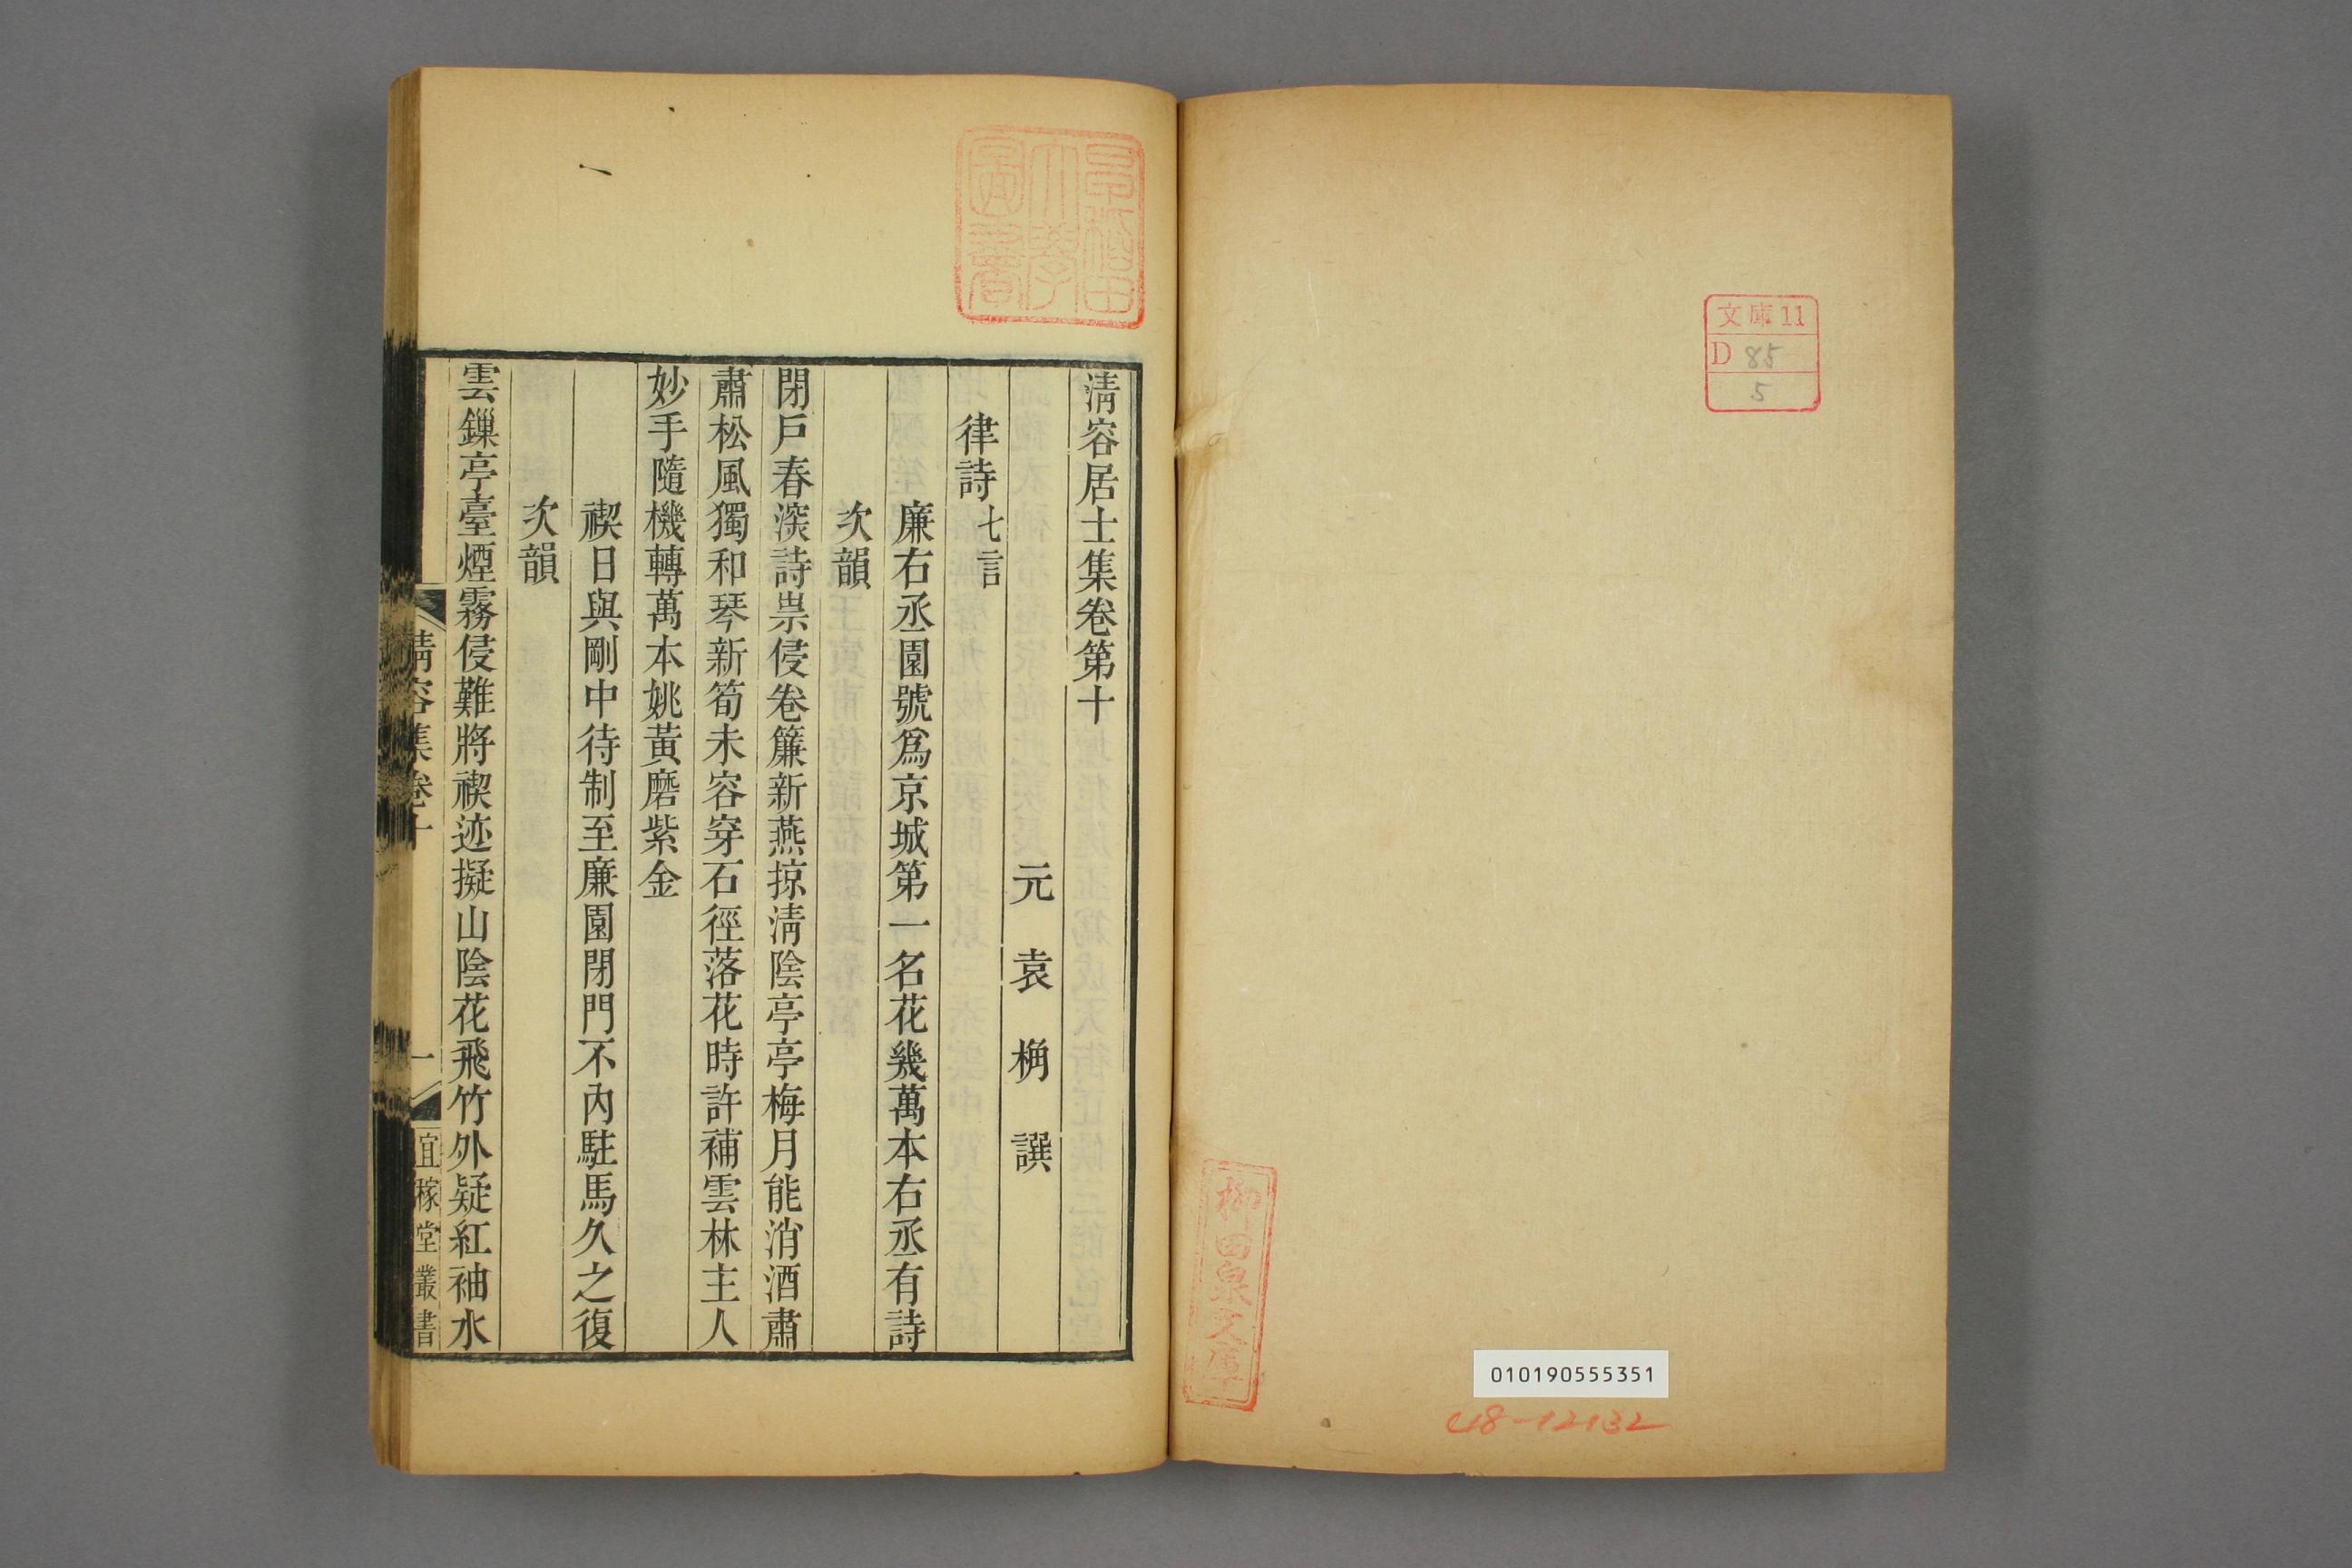 文庫11
D 85
5
柳田泉文庫
010190555351
C18-12132
早稲田大學圖書
清容居士集卷第十
元 袁 桷 譔
律詩七言
廉右丞園號爲京城第一名花幾萬本右丞有詩
次韻
閉戶春深詩祟侵卷簾新燕掠清陰亭亭梅月能消酒肅
肅松風獨和琴新筍未容穿石徑落花時許補雲林主人
妙手隨機轉萬本姚黃磨紫金
禊日與剛中待制至廉園閉門不內駐馬久之復
次韻
雲鏁亭臺煙霧侵難將禊迹擬山陰花飛竹外疑紅袖水
清容集卷十
一
宜稼堂叢書